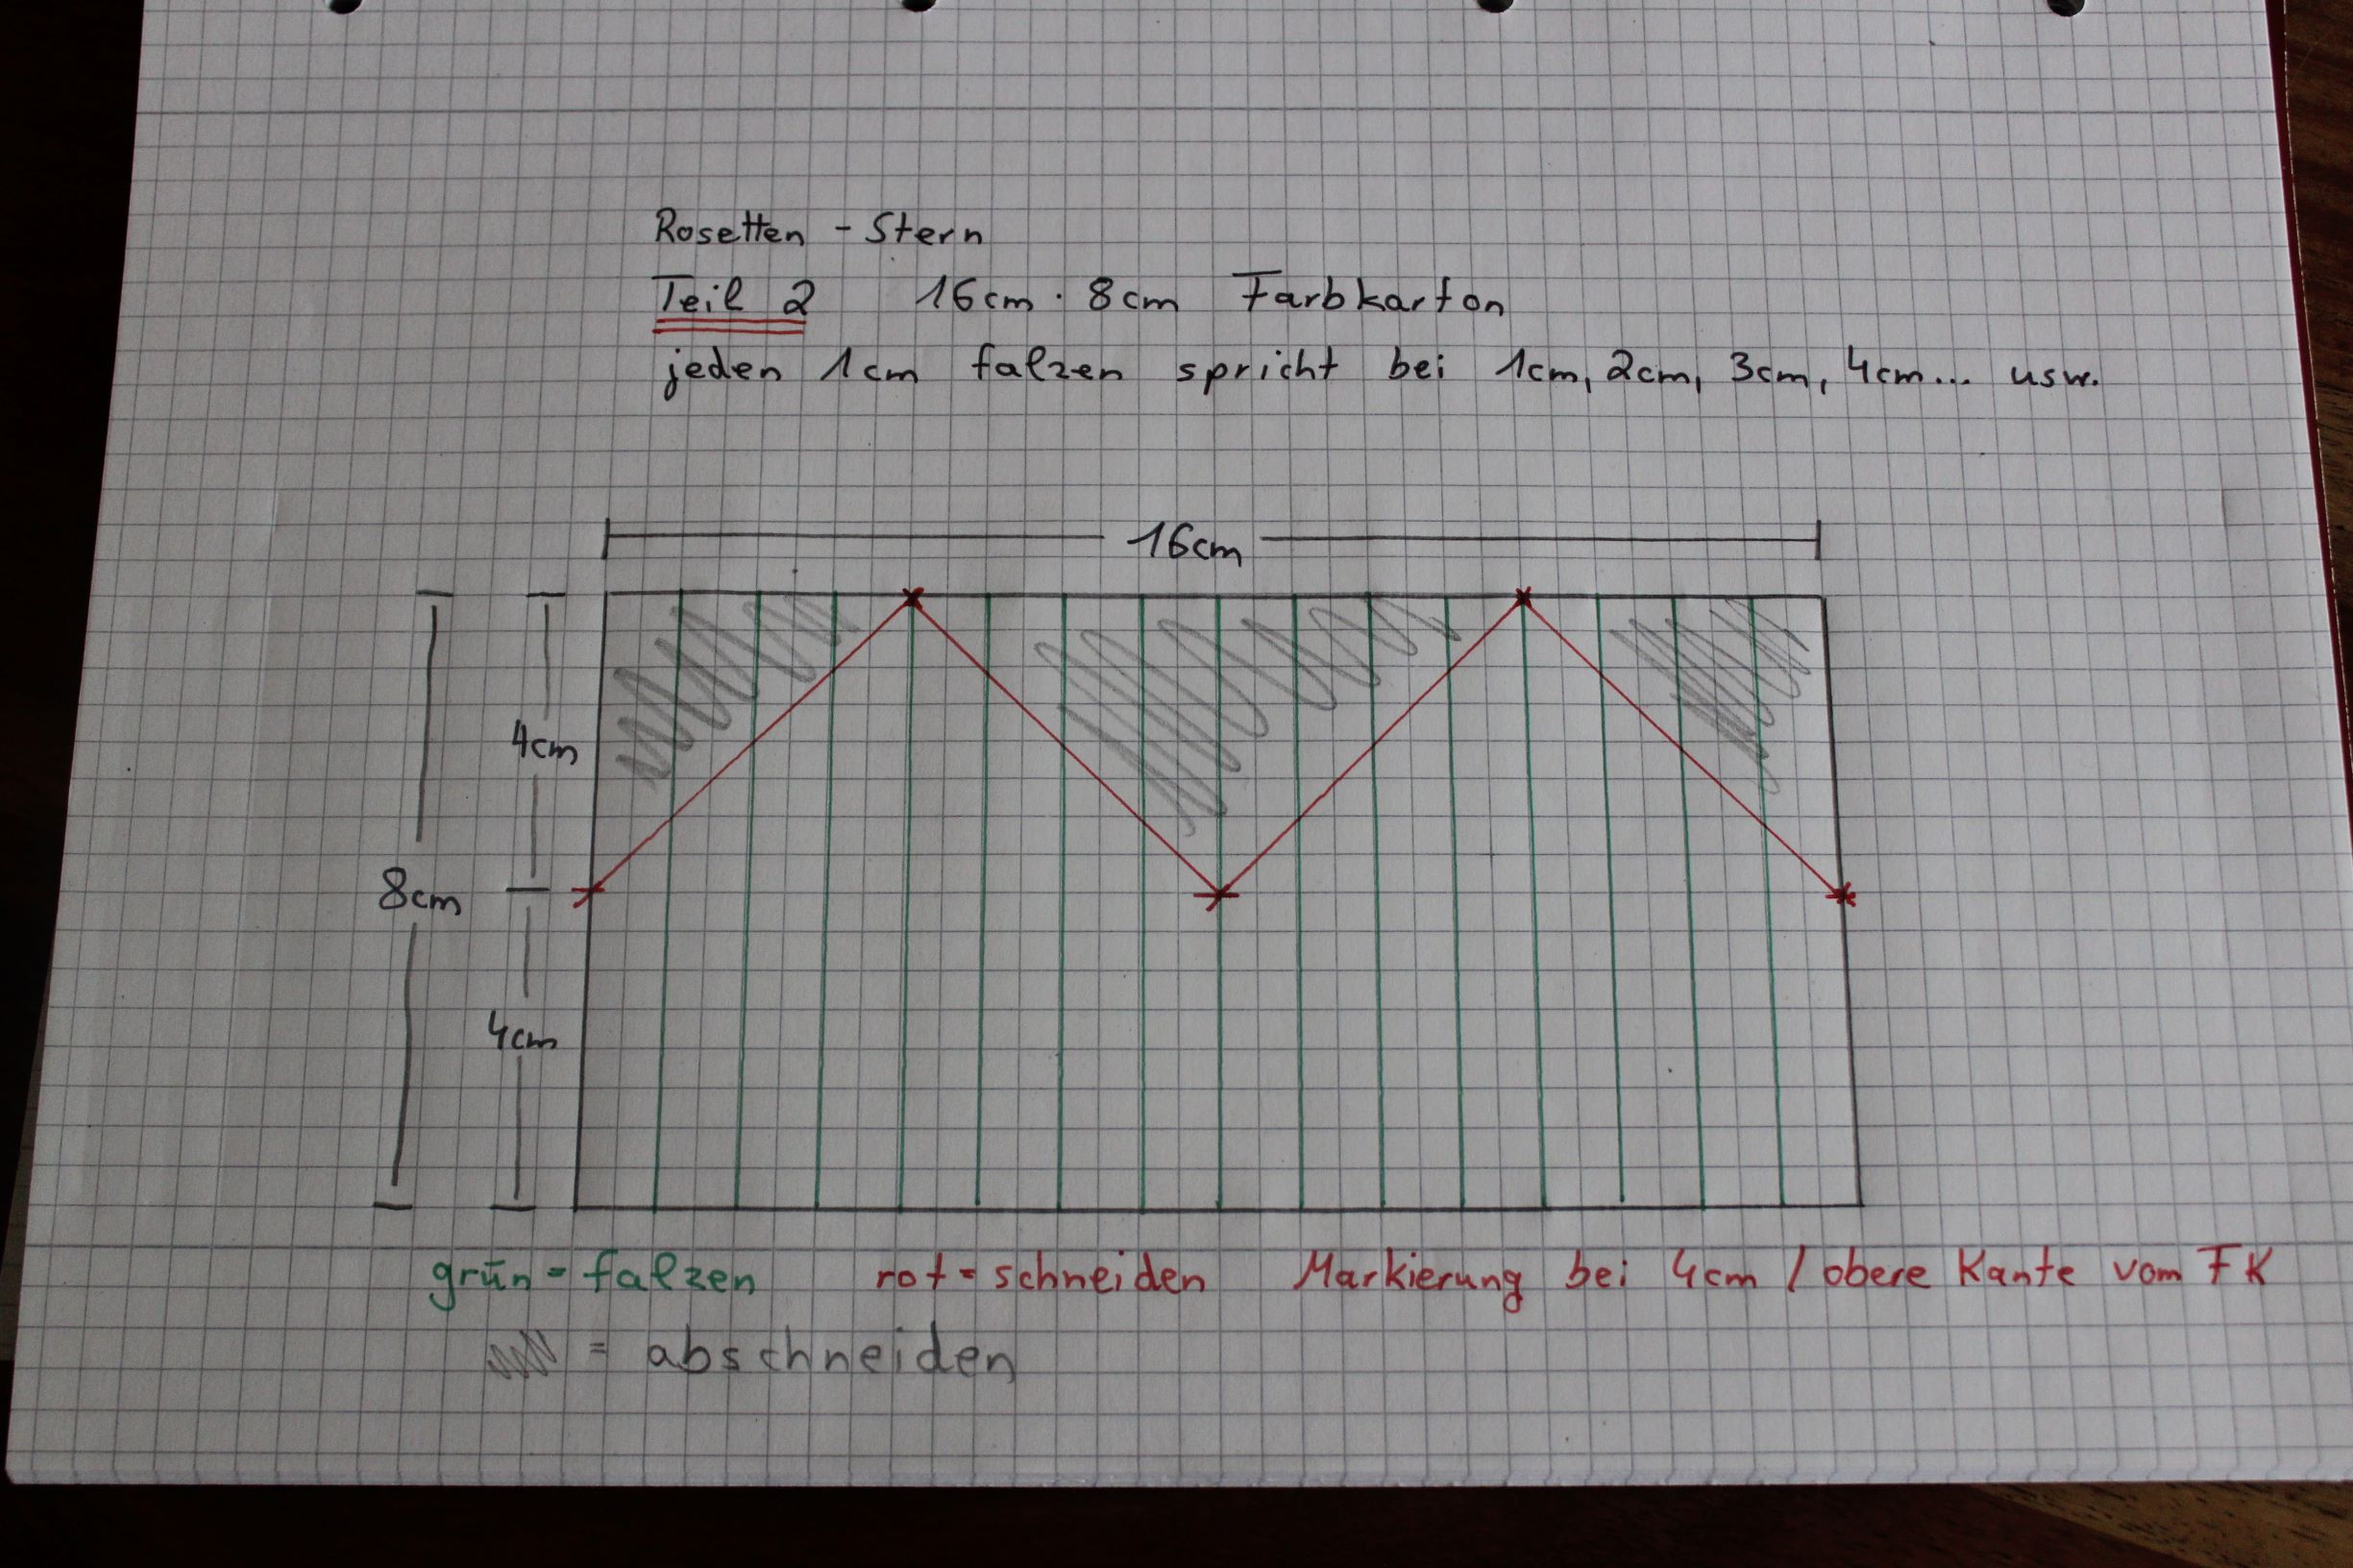 Rosetten - Stern
Teil 2 16cm · 8cm Farbkarton
jeden 1cm falzen spricht bei 1cm, 2cm, 3cm, 4cm... usw.
16cm
4cm
8cm
4cm
grün = falzen rot = schneiden Markierung bei 4cm / obere Kante vom FK
= abschneiden